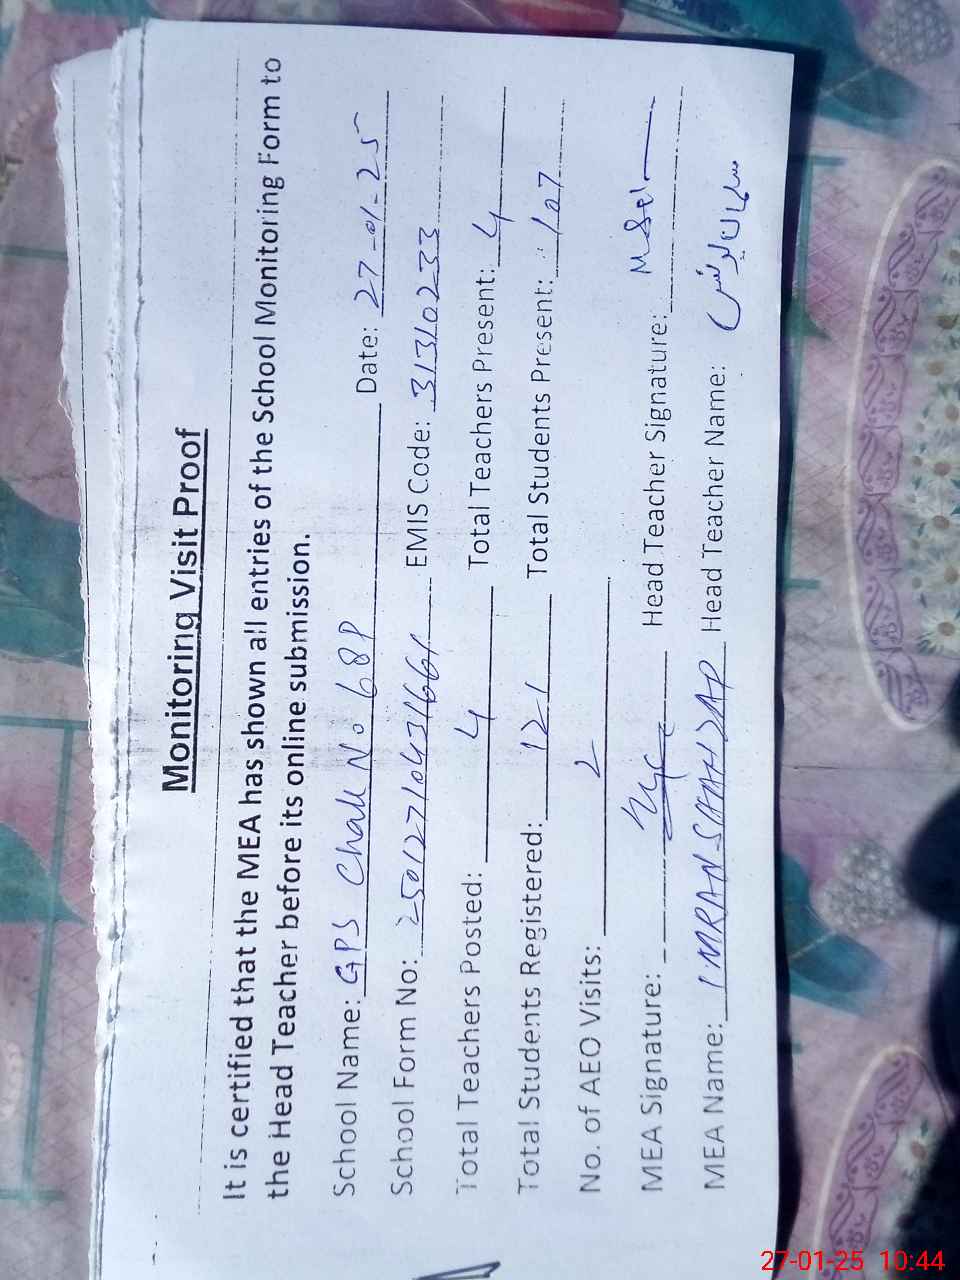 Monitoring Visit Proof
It is certified that the MEA has shown all entries of the School Monitoring Form to
the Head Teacher before its online submission.
School Name: GPS Chak No 68P Date: 27-01-25
School Form No: 25012710431661 EMIS Code: 31310233
Total Teachers Posted: 4 Total Teachers Present: 4
Total Students Registered: 121 Total Students Present: 107
No. of AEO Visits: 2
MEA Signature: Head Teacher Signature:
MEA Name: IMRAN SAFAHDAR Head Teacher Name:
27-01-25 10:44